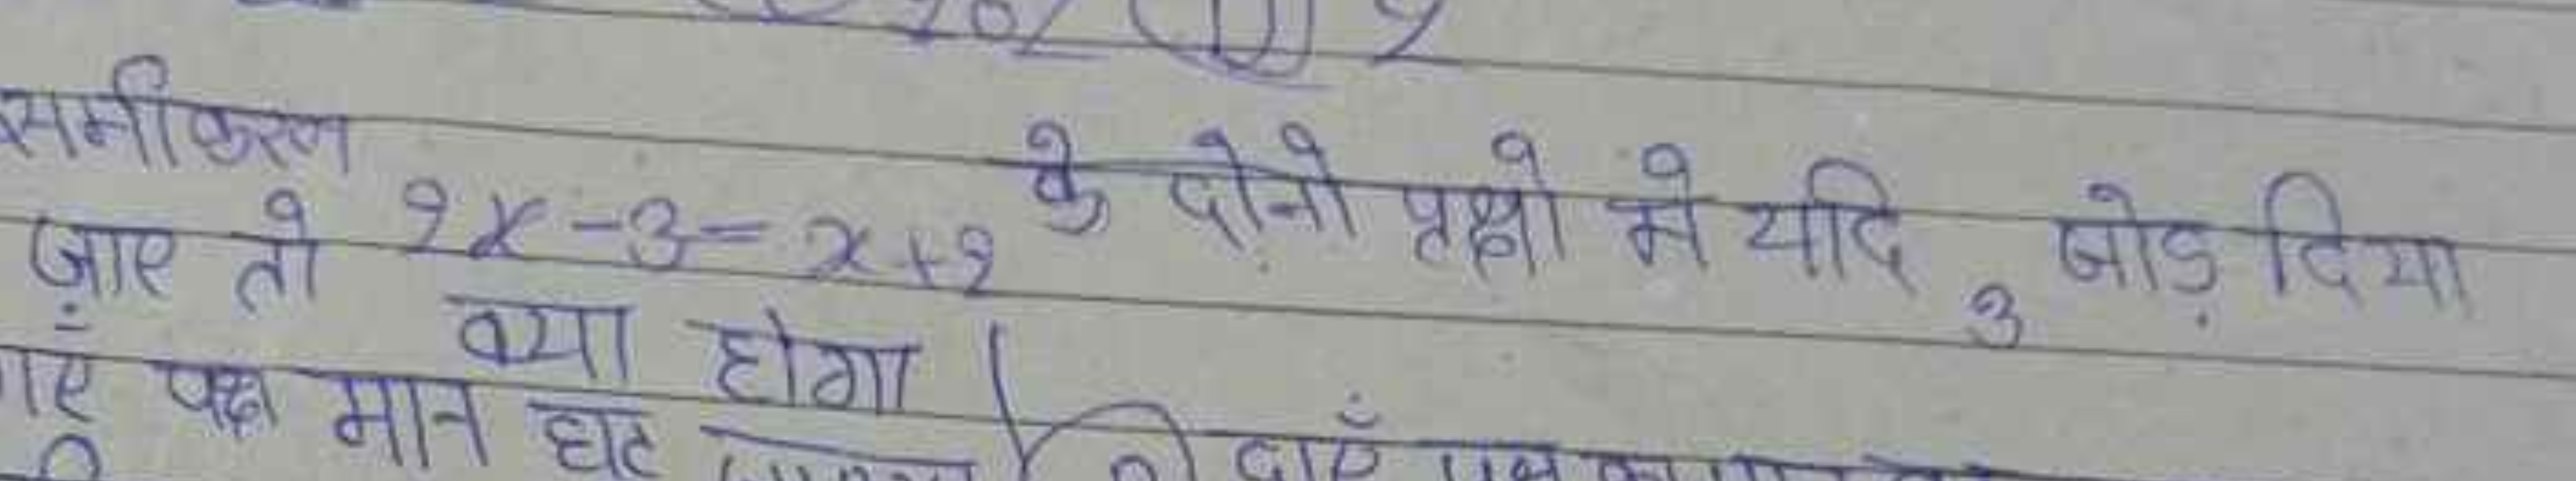 समीकरण 2x-3=x+2 के दोनो पृक्षो मे यदि 3 जोड़ दिया
जाए तो क्या होगा।
पक्ष मान घट
दाएँ पक्ष